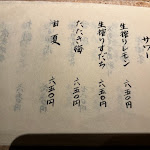 サワー
生搾りレモン 六五〇円
生搾りすだち 六五〇円
たたき梅 六五〇円
甘夏 六五〇円